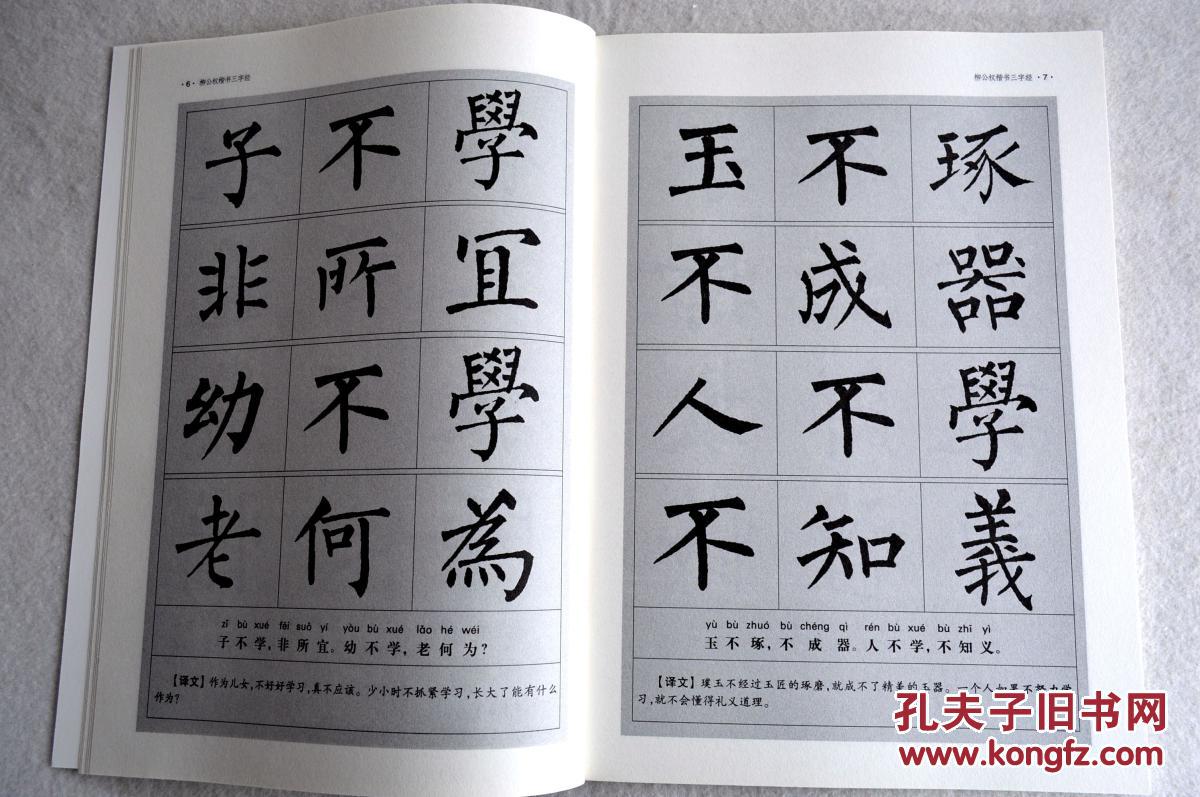 ·6· 柳公权楷书三字经
子不學
非所宜
幼不學
老何為
zǐ bù xué fēi suǒ yí yòu bù xué lǎo hé wéi
子不学,非所宜。幼不学,老何为?
【译文】作为儿女,不好好学习,真不应该。少小时不抓紧学习,长大了能有什么
作为?
柳公权楷书三字经 ·7·
玉不琢
不成器
人不學
不知義
yù bù zhuó bù chéng qì rén bù xué bù zhī yì
玉不琢,不成器。人不学,不知义。
【译文】璞玉不经过玉匠的琢磨,就成不了精美的玉器。一个人如果不努力学
习,就不会懂得礼义道理。
孔夫子旧书网
www.kongfz.com